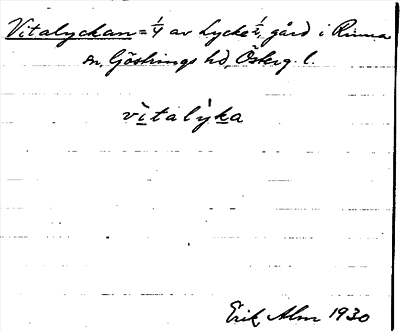 Vitalyckan = 1/4 av Lycke 1/2, gård i Rinna
sn, Göstrings hd, Österg. l.
vìtalỳka
Erik Alm 1930